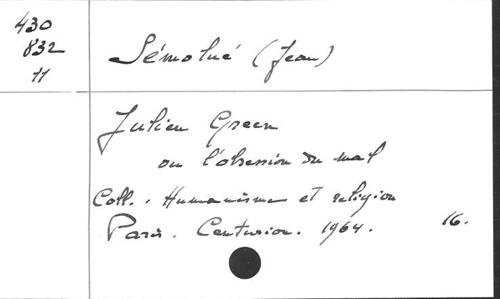 430
832
11
Sémolué (Jean)
Julien Green
ou l'obsession du mal
Coll. Humanisme et religion
Paris. Centurion. 1964. 16.